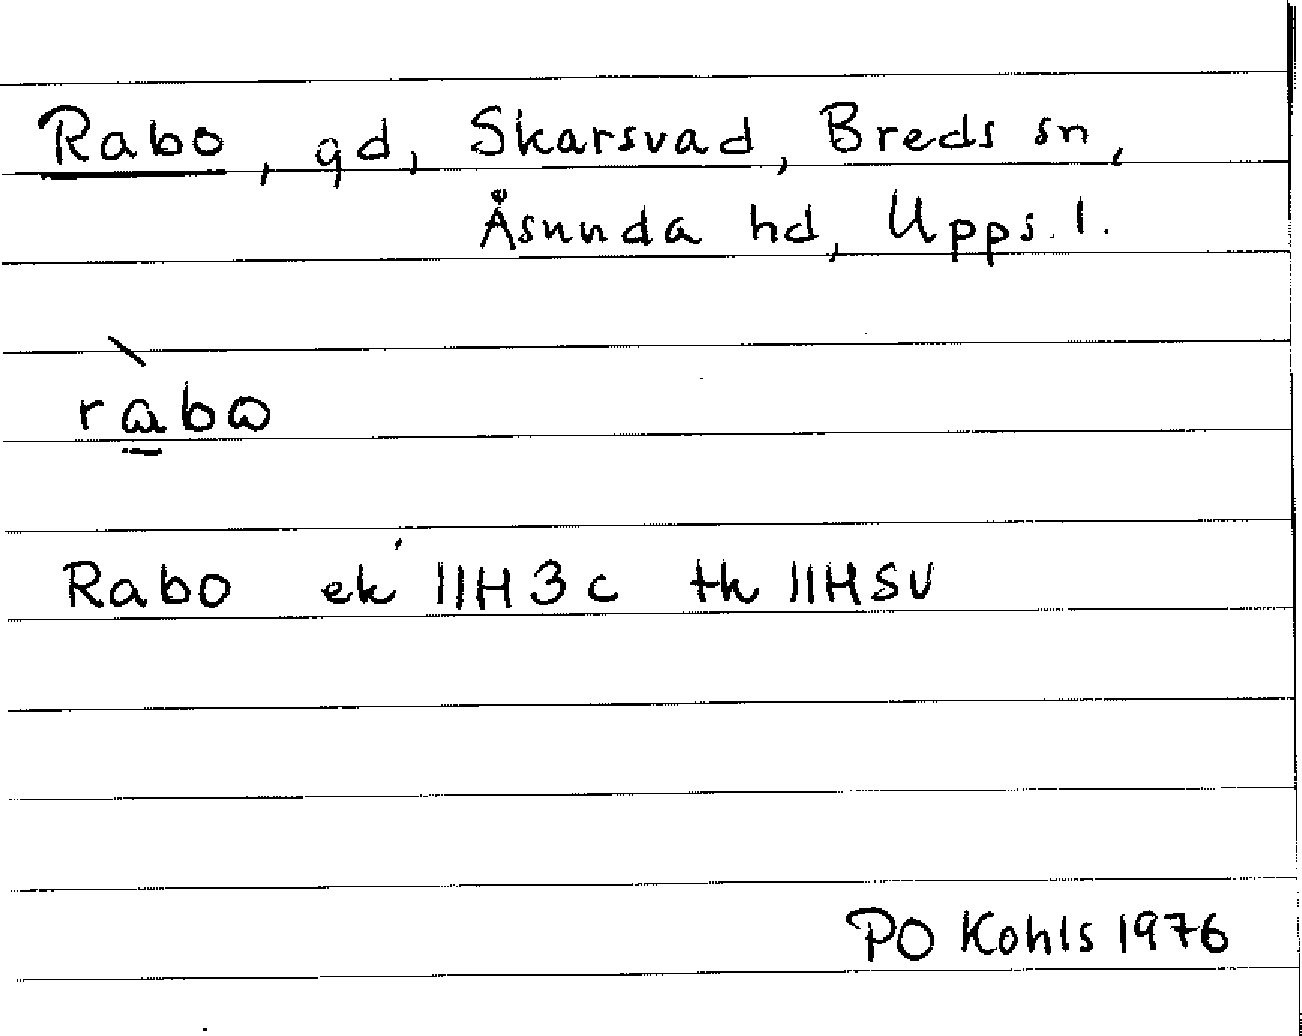 Rabo, gd, Skarsvad, Breds sn,
Åsunda hd, Upps. l.
Rabo ek 11H3c tk 11HSV
PO Kohls 1976